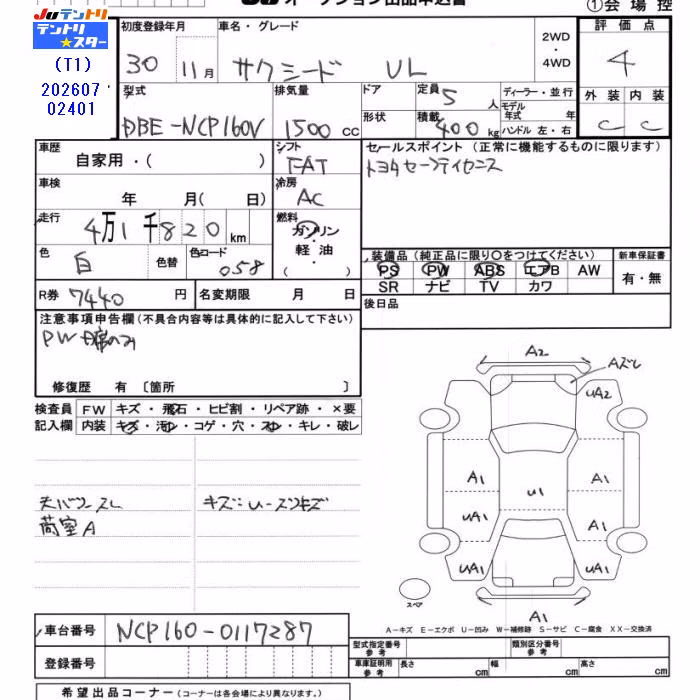 JUテントリ
テントリ
★スター
(T1)
202607
02401
JU オークション出品申込書
①会場控
初度登録年月
30 11月
車名・グレード
サクシード UL
2WD・4WD
評価点
4
外装 内装
C C
型式
DBE-NCP160V
排気量
1500 cc
ドア
定員 5 人
形状
積載 400 kg
ディーラー・並行
モデル年式 年
ハンドル 左・右
車歴
自家用・( )
シフト
FAT
車検
年 月( 日)
冷房
AC
走行
4万1千820 km
燃料
ガソリン・軽油・( )
色
白
色替
色コード
058
R券 7440 円
名変期限 月 日
セールスポイント(正常に機能するものに限ります)
トヨタセーフティセンス
装備品(純正品に限り○をつけてください)
PS PW ABS エアB AW
SR ナビ TV カワ
新車保証書
有・無
後日品
注意事項申告欄(不具合内容等は具体的に記入して下さい)
PW
修復歴 有 〔箇所 〕
検査員 FW キズ・飛石・ヒビ割・リペア跡・×要
記入欄 内装 キズ・汚レ・コゲ・穴・スレ・キレ・破レ
スレ
荷室A
キズ:U
A2
Aズレ
UA2
A1 A1
U1
UA1 A1
UA1 UA1
スペア
A1
A-キズ E-エクボ U-凹み W-補修跡 S-サビ C-腐食 XX-交換済
車台番号 NCP160-0117287
登録番号
型式指定番号 参考
類別区分番号 参考
車庫証明用 参考
長さ cm
幅 cm
高さ cm
希望出品コーナー(コーナーは各会場により異なります。)